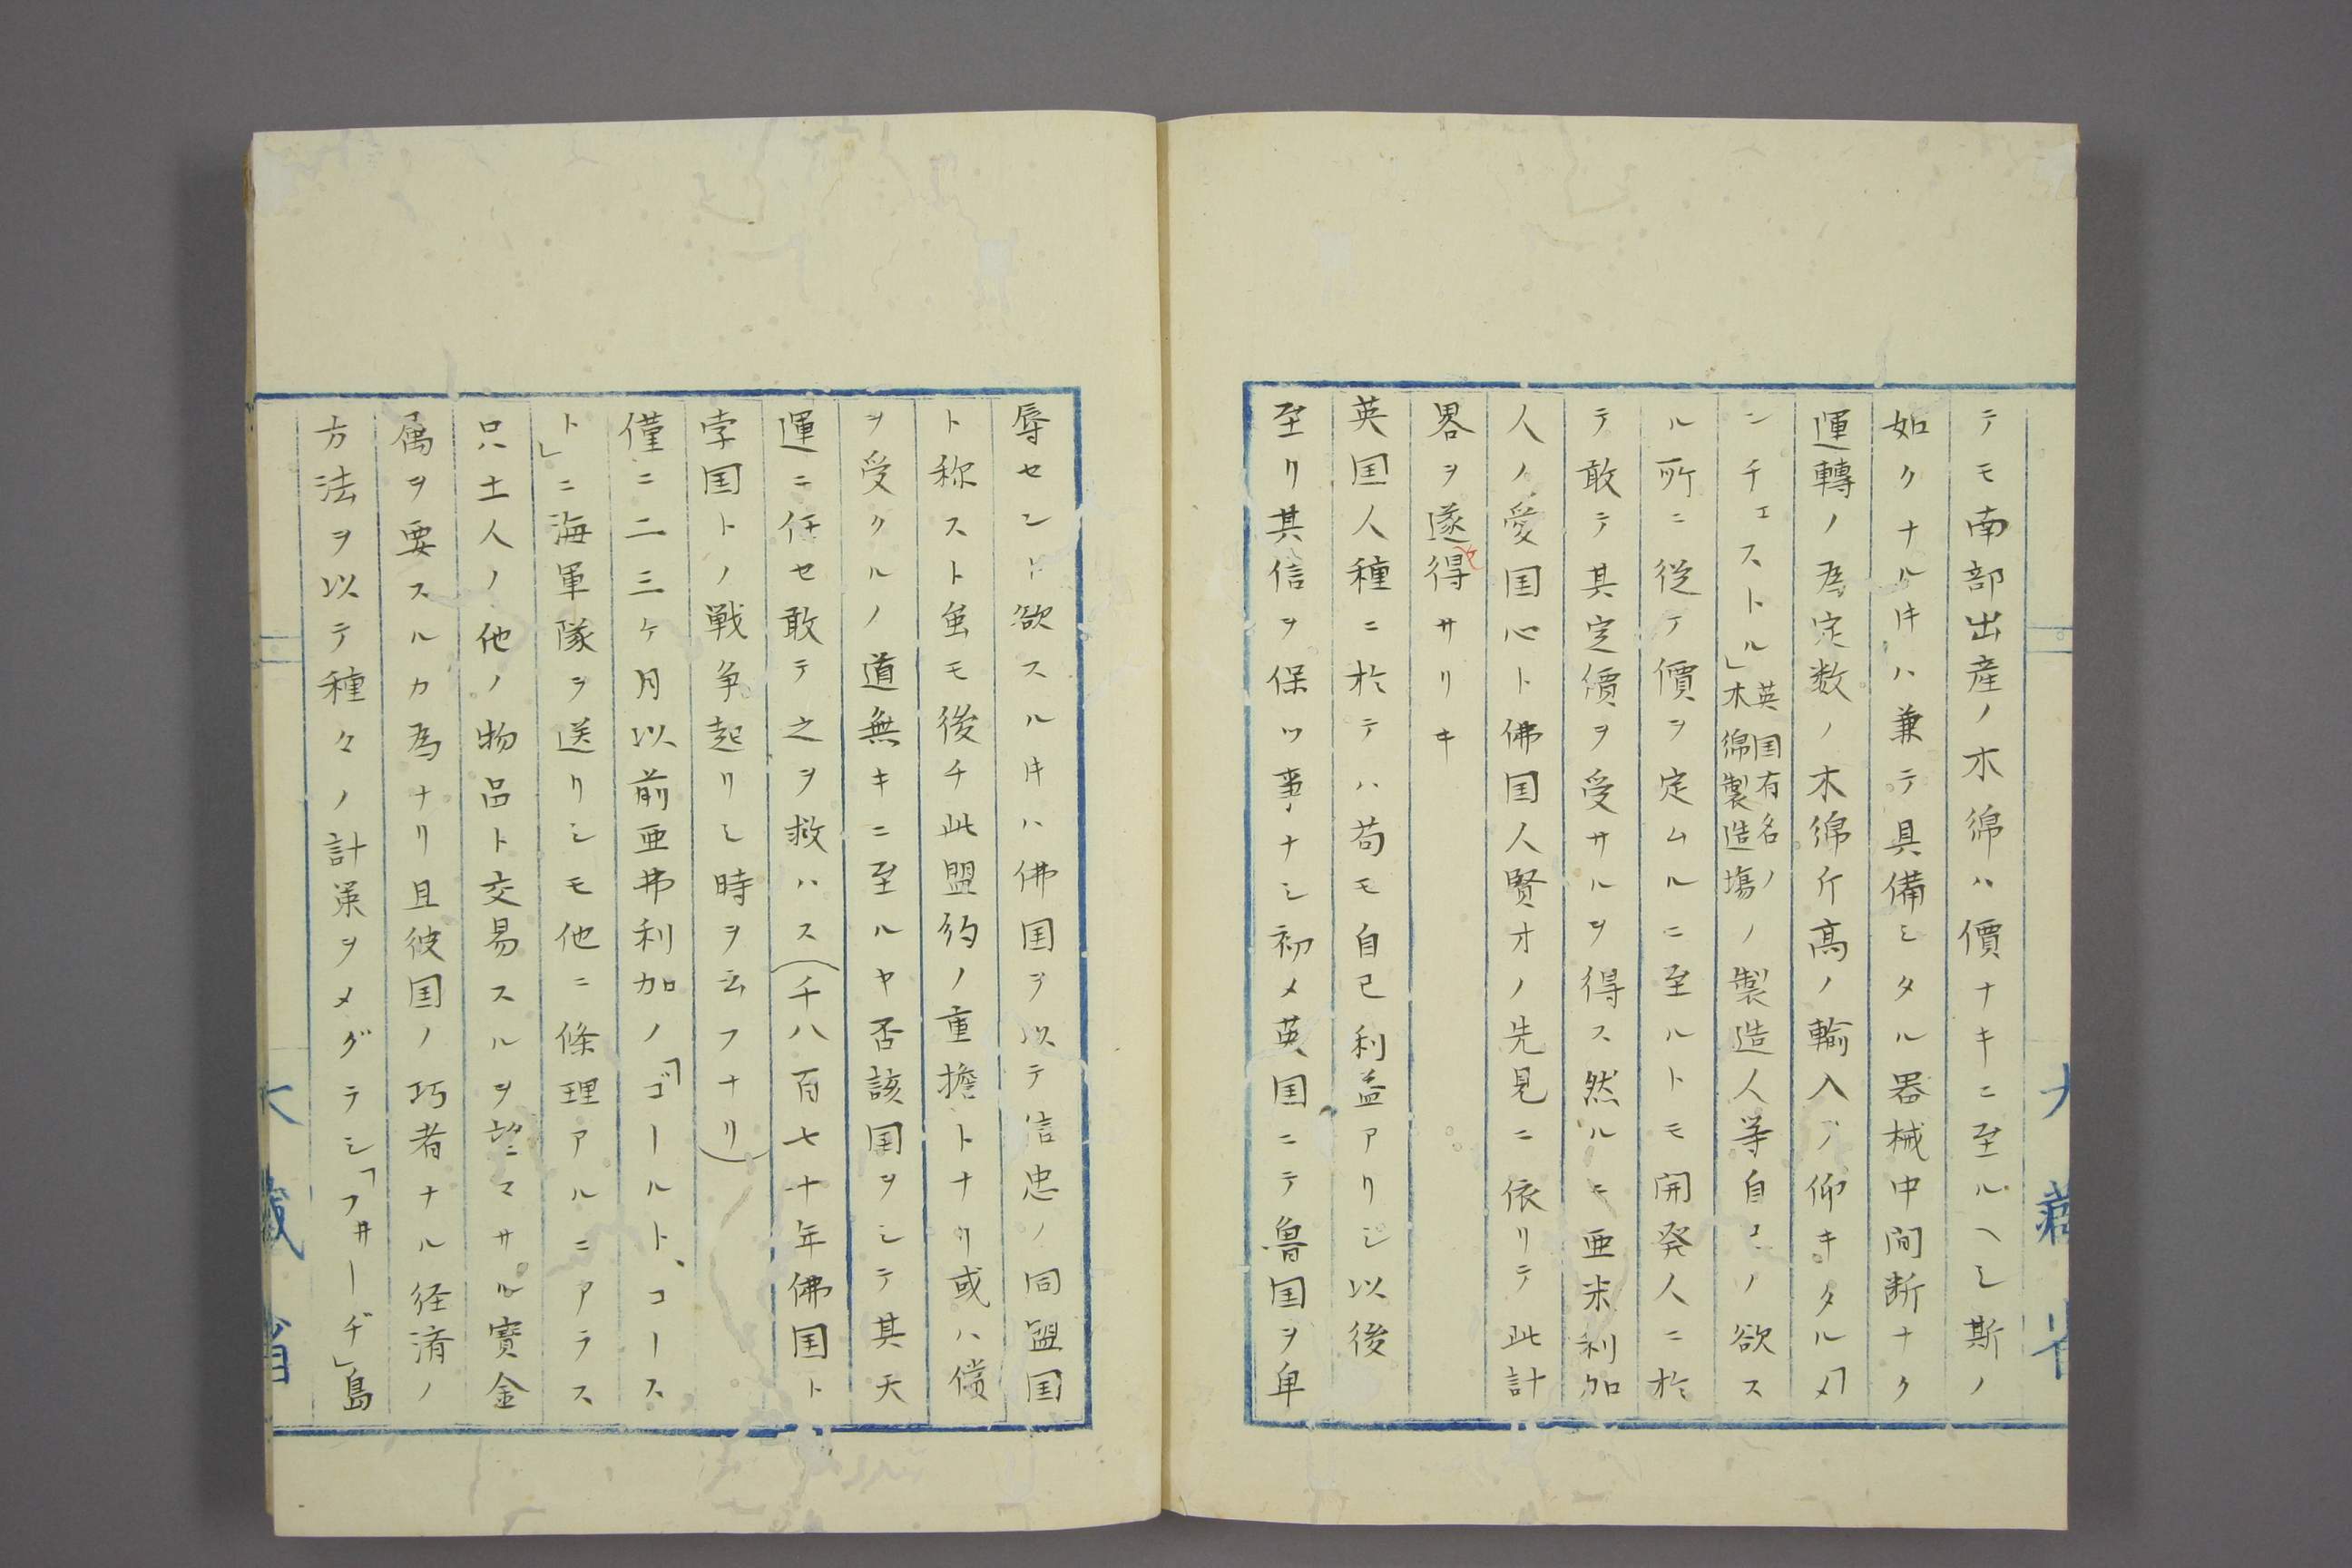 テモ南部出産ノ木綿ハ價ナキニ至ルヘシ斯ノ
如クナルヰハ兼テ具備シタル器械中間断ナク
運轉ノ為定数ノ木綿斤高ノ輸入ヲ仰キタル「メ
ンチェストル」英国有名ノ木綿製造塲ノ製造人等自己ノ欲ス
ル所ニ從テ價ヲ定ムルニ至ルトモ開発人ニ於
テ敢テ其定價ヲ受サルヲ得ス然ルモ亜米利加
人ノ愛国心ト佛国人賢才ノ先見ニ依リテ此計
畧ヲ遂得サリキ
英国人種ニ於テハ苟モ自己利益アリシ以後
至リ其信ヲ保ツ事ナシ初メ英国ニテ魯国ヲ卑
辱セント欲スルヰハ佛国ヲ以テ信忠ノ同盟国
ト称スト虽モ後チ此盟約ノ重擔トナリ或ハ償
ヲ受クルノ道無キニ至ルヤ否該国ヲシテ其天
運ニ任セ敢テ之ヲ救ハス(千八百七十年佛国ト
孛国トノ戦争起リシ時ヲ云フナリ)
僅ニ二三ケ月以前亜弗利加ノ「ゴールト、コース
ト」ニ海軍隊ヲ送リシモ他ニ條理アルニアラス
只土人ノ他ノ物品ト交易スルヲ望マサル寶金
属ヲ要スルカ為ナリ且彼国ノ巧者ナル径済ノ
方法ヲ以テ種々ノ計策ヲメグラシ「フヰーヂ」島
大藏省
大藏省